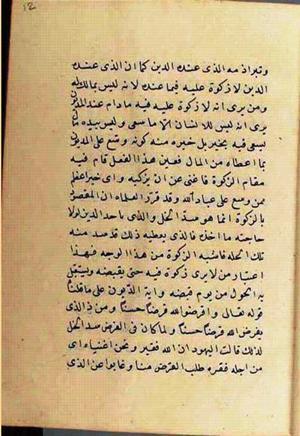 ١٢
وتبرا ذمه الذى عنده الدين كما ان الذى عنده
الدين لا زكوة عليه فيما عنده لانه ليس بمالك له
ومن يرى انه لا زكوة عليه فيه ما دام عند المديون
يرى انه ليس للانسان الا ما سعى وليس بيده ما
يسعى فيه بخير بل خيره منه كونه وسع على المديون
بما اعطاه من المال فعين هذا الفعل قام فيه
مقام الزكوة فاغنى عن ان يزكيه واى خير اعظم
ممن وسع على عباد الله وقد قرر العلماء ان المقصود
بالزكوة انما هو سد الخلل والذى ياخذ الدين لولا
حاجته ما اخذه فالذى يعطيه ذلك قد سد منه
تلك الخله فاشبه الزكوة من هذا الوجه فهذا
اعتبار من لا يرى زكوة فيه حتى يقبضه ويستقبل
به الحول من يوم قبضه واية الذين على ما قلناه
قوله تعالى واقرضوا الله قرضا حسنا ومن ذا الذى
يقرض الله قرضا حسنا ولما كان فى القرض سد الخلل
لذلك قالت اليهود ان الله فقير ونحن اغنياء اى
من اجل فقره طلب القرض منا وغابوا عن الذى